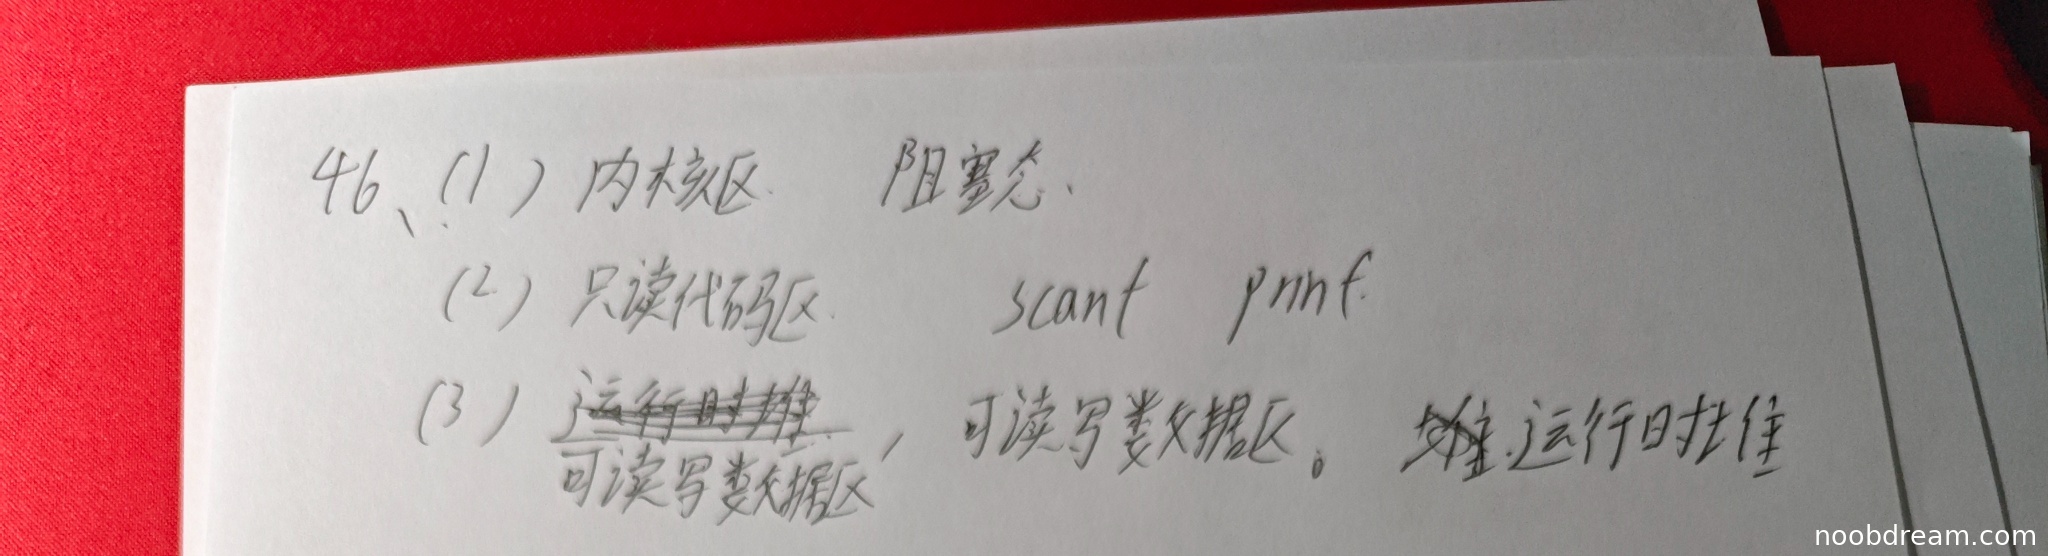 46、(1) 内核区. 阻塞态、
(2) 只读代码区. scanf printf.
(3) 运行时堆, 可读写数据区。 堆.运行时堆
可读写数据区
noobdream.com